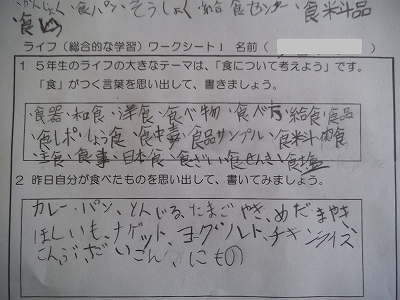 かんしょく・食パン・そうしょく・給食センター・食料品
食
ライフ(総合的な学習)ワークシート1 名前(
1 5年生のライフの大きなテーマは、「食について考えよう」です。
「食」がつく言葉を思い出して、書きましょう。
・食器・和食・洋食・食べ物・食べ方・給食・食品
・食中毒・食品サンプル・食料・肉食
・主食・食事・日本食・食ざい・食せんき・食塩
2 昨日自分が食べたものを思い出して、書いてみましょう。
カレーパン、とんじる、たまごやき、めだまやき
ほしいも、ナゲット、ヨーグルト、チキンライス
こんぶ、だいこん、にもの